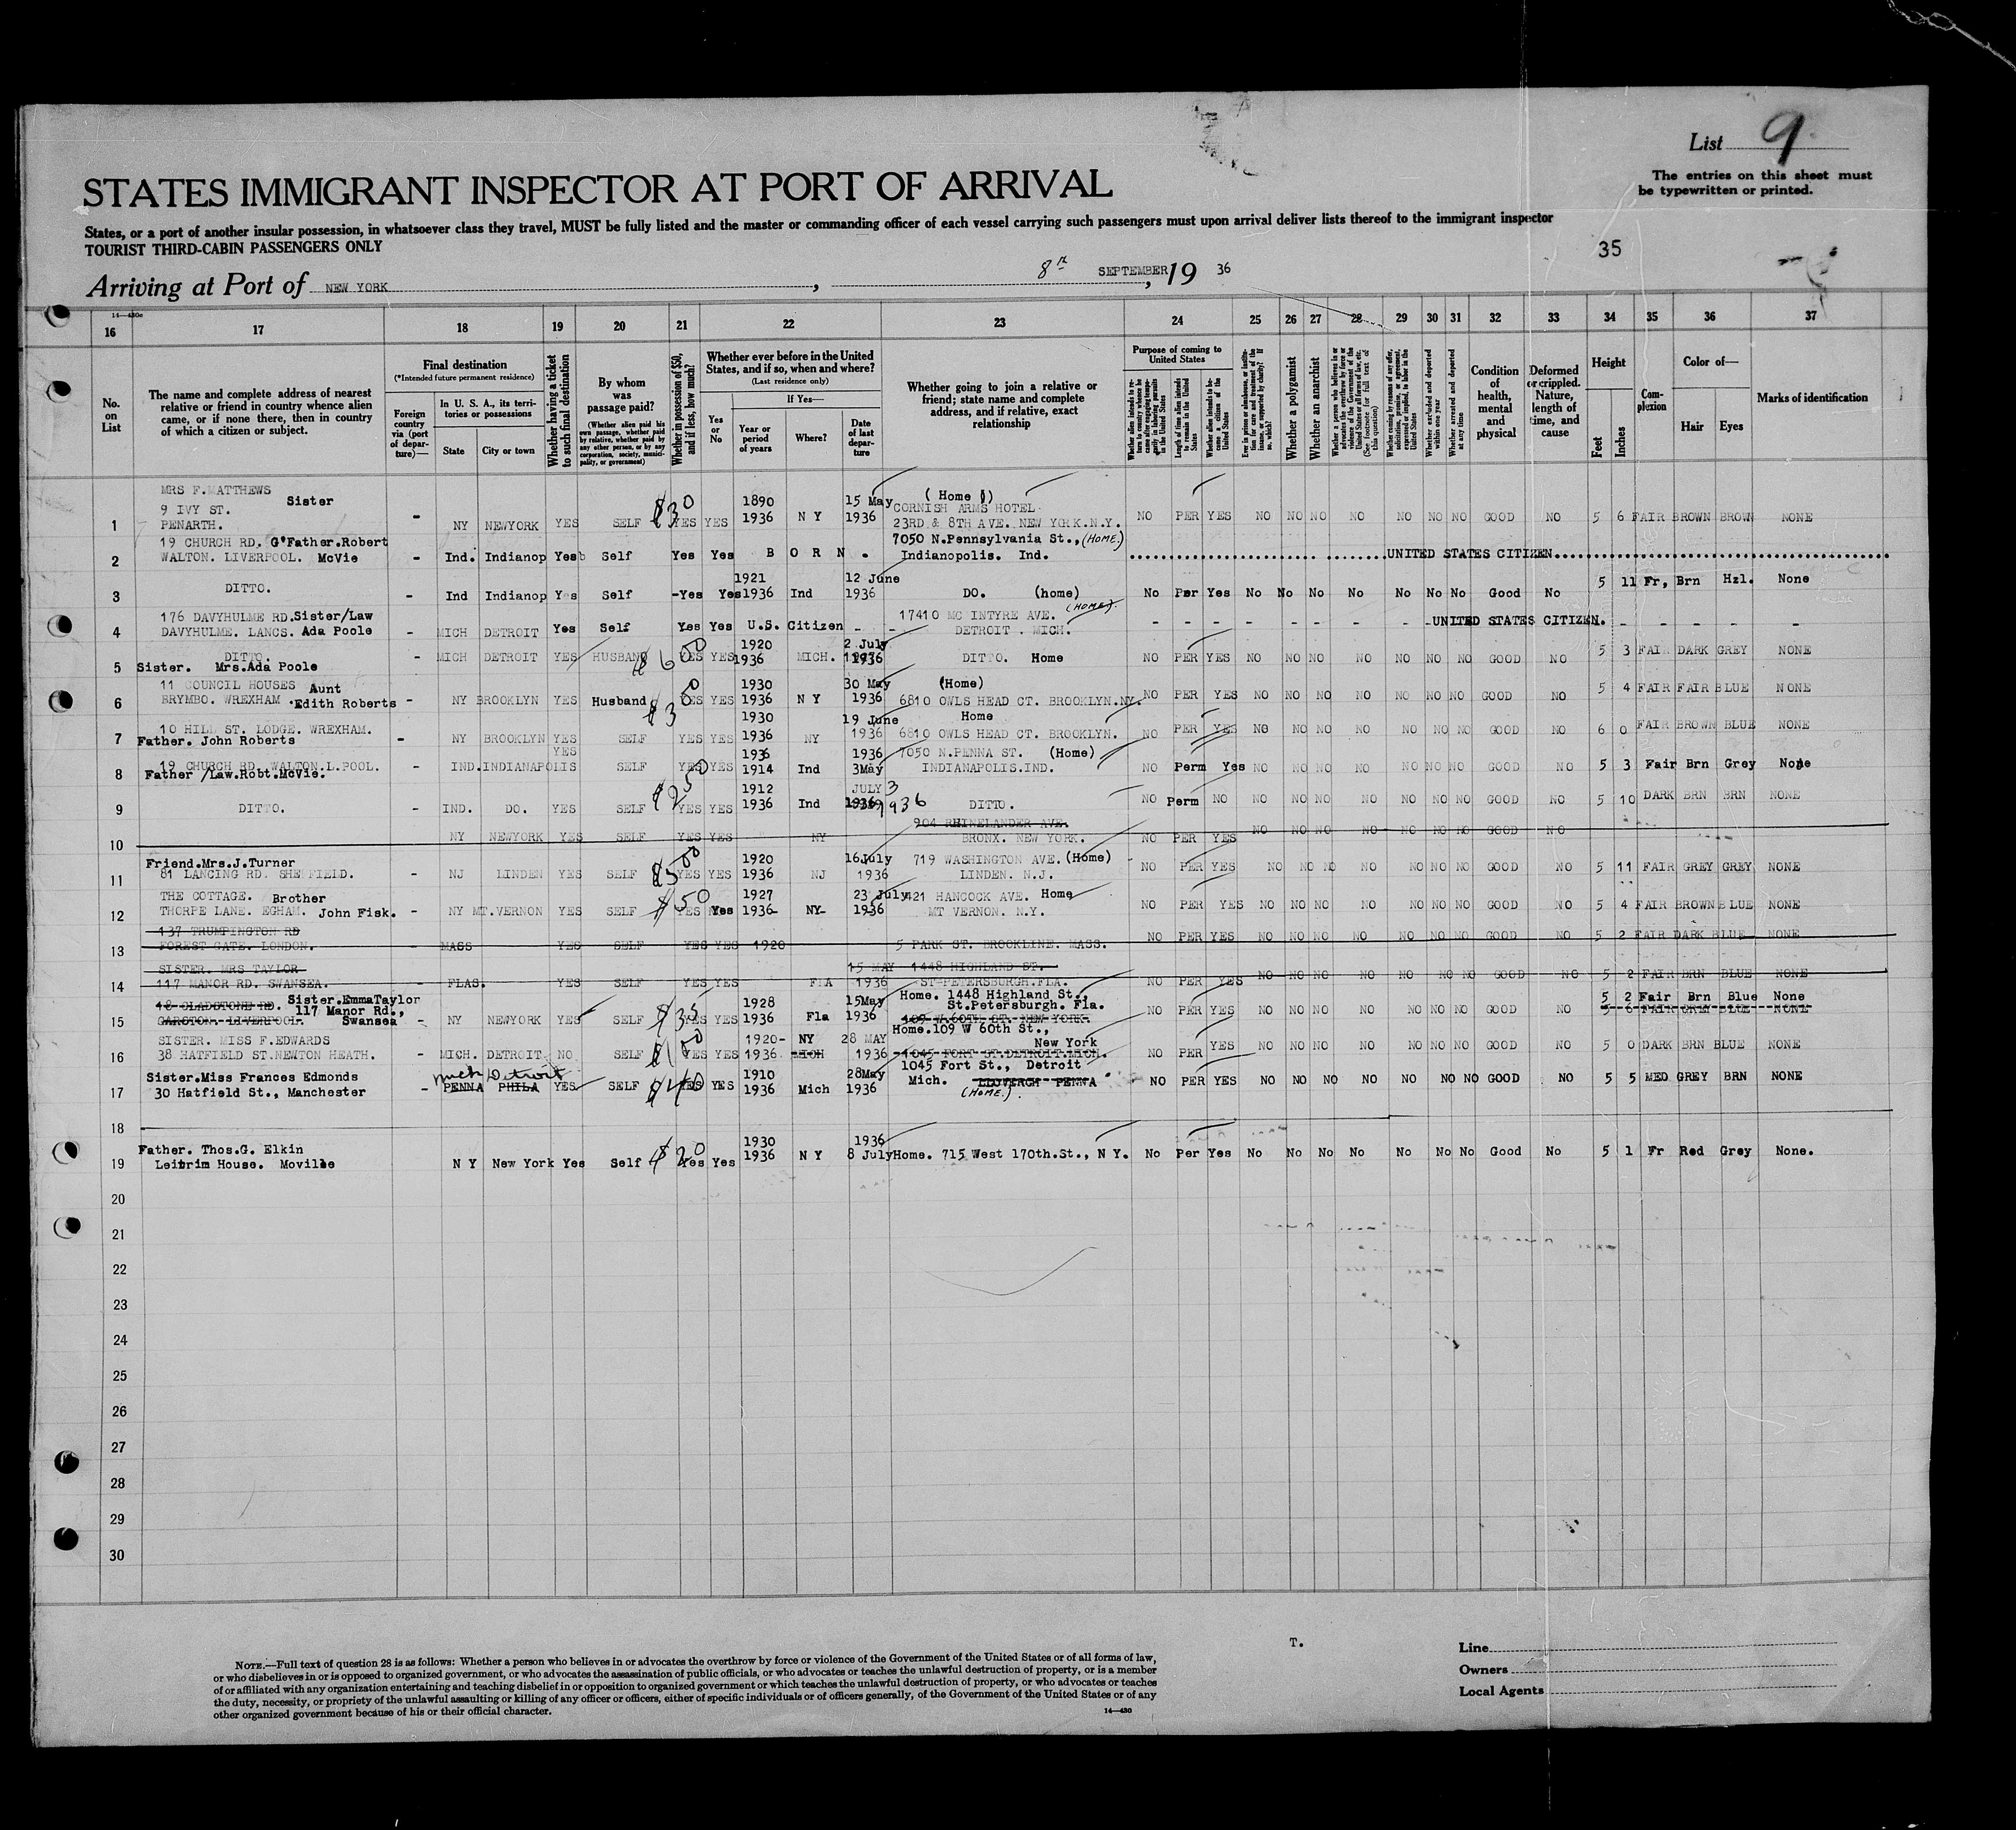 List 9
The entries on this sheet must
be typewritten or printed.
STATES IMMIGRANT INSPECTOR AT PORT OF ARRIVAL
States, or a port of another insular possession, in whatsoever class they travel, MUST be fully listed and the master or commanding officer of each vessel carrying such passengers must upon arrival deliver lists thereof to the immigrant inspector
TOURIST THIRD-CABIN PASSENGERS ONLY
35
Arriving at Port of NEW YORK, 8th SEPTEMBER, 19 36
16 17 18 19 20 21 22 23 24 25 26 27 28 29 30 31 32 33 34 35 36 37
No. on List
The name and complete address of nearest
relative or friend in country whence alien
came, or if none there, then in country
of which a citizen or subject.
Final destination
(*Intended future permanent residence)
Foreign country via (port of departure)—
In U. S. A., its territories or possessions
State
City or town
Whether having a ticket to such final destination
By whom was passage paid?
(Whether alien paid his own passage, whether paid by relative, whether paid by any other person, or by any corporation, society, municipality, or government)
Whether in possession of $50, and if less, how much?
Whether ever before in the United States, and if so, when and where?
(Last residence only)
Yes or No
If Yes—
Year or period of years
Where?
Date of last departure
Whether going to join a relative or
friend; state name and complete
address, and if relative, exact
relationship
Purpose of coming to United States
Whether a polygamist
Whether an anarchist
Whether arrested and deported at any time
Condition of health, mental and physical
Deformed or crippled. Nature, length of time, and cause
Height
Feet
Inches
Complexion
Color of—
Hair
Eyes
Marks of identification
MRS F.MATTHEWS Sister
9 IVY ST.
1 PENARTH. - NY NEWYORK YES SELF $30 YES YES 1890 1936 N Y 15 May 1936 (Home) CORNISH ARMS HOTEL 23RD & 8TH AVE. NEW YORK.N.Y. NO PER YES NO NO NO NO NO NO NO GOOD NO 5 6 FAIR BROWN BROWN NONE
19 CHURCH RD. G'Father.Robert
2 WALTON. LIVERPOOL. McVie - Ind. Indianop Yes Self Yes Yes BORN. 7050 N.Pennsylvania St.,(HOME.) Indianopolis. Ind. UNITED STATES CITIZEN
3 DITTO. - Ind Indianop Yes Self -Yes Yes 1921 1936 Ind 12 June 1936 DO. (home) No Per Yes No No No No No No No Good No 5 11 Fr, Brn Hzl. None
176 DAVYHULME RD.Sister/Law
4 DAVYHULME. LANCS. Ada Poole - MICH DETROIT Yes Self Yes Yes U.S. Citizen - - 17410 MC INTYRE AVE. (HOME) DETROIT. MICH. - - - - - - - - UNITED STATES CITIZEN. - - - - -
DITTO.
5 Sister. Mrs.Ada Poole - MICH DETROIT YES HUSBAND $600 YES YES 1920 1936 MICH. 2 July 1936 DITTO. Home NO PER YES NO NO NO NO NO NO NO GOOD NO 5 3 FAIR DARK GREY NONE
11 COUNCIL HOUSES Aunt
6 BRYMBO. WREXHAM .Edith Roberts - NY BROOKLYN YES Husband YES YES 1930 1936 N Y 30 May 1936 (Home) 6810 OWLS HEAD CT. BROOKLYN.NY. NO PER YES NO NO NO NO NO NO NO GOOD NO 5 4 FAIR FAIR BLUE NONE
10 HILL ST. LODGE. WREXHAM.
7 Father. John Roberts - NY BROOKLYN YES SELF YES YES 1930 1936 NY 19 June 1936 Home 6810 OWLS HEAD CT. BROOKLYN. NO PER YES NO NO NO NO NO NO NO GOOD NO 6 0 FAIR BROWN BLUE NONE
19 CHURCH RD. WALTON.L.POOL.
8 Father /Law.Robt.McVie. - IND.INDIANAPOLIS YES SELF YES YES 1936 1914 Ind 1936 3May 7050 N.PENNA ST. (Home) INDIANAPOLIS.IND. NO Perm Yes NO NO NO NO NO NO NO GOOD NO 5 3 Fair Brn Grey None
9 DITTO. - IND. DO. YES SELF YES YES 1912 1936 Ind JULY 3 1936 DITTO. NO Perm NO NO NO NO NO NO NO NO GOOD NO 5 10 DARK BRN BRN NONE
10 NY NEWYORK YES SELF YES YES NY 904 RHINELANDER AVE. BRONX. NEW YORK. NO PER YES NO NO NO NO NO NO NO GOOD NO
Friend.Mrs.J.Turner
11 81 LANCING RD. SHEFFIELD. - NJ LINDEN YES SELF YES YES 1920 1936 NJ 16July 1936 719 WASHINGTON AVE.(Home) LINDEN. N.J. NO PER YES NO NO NO NO NO NO NO GOOD NO 5 11 FAIR GREY GREY NONE
THE COTTAGE. Brother
12 THORPE LANE. EGHAM. John Fisk. - NY MT.VERNON YES SELF $50 YES Yes 1927 1936- NY- 23 July 1936 421 HANCOCK AVE. Home MT VERNON. N.Y. NO PER YES NO NO NO NO NO NO NO GOOD NO 5 4 FAIR BROWN BLUE NONE
137 TRUMPINGTON RD
13 FOREST GATE. LONDON. - MASS YES SELF YES YES 1920 5 PARK ST. BROOKLINE. MASS. NO PER YES NO NO NO NO NO NO NO GOOD NO 5 2 FAIR DARK BLUE NONE
SISTER. MRS TAYLOR
14 117 MANOR RD. SWANSEA. - FLAS. YES SELF YES YES FLA 15 MAY 1936 1448 HIGHLAND ST. ST-PETERSBURGH.FLA. NO PER YES NO NO NO NO NO NO NO GOOD NO 5 2 FAIR BRN BLUE NONE
18 GLADSTONE RD. Sister.EmmaTaylor
117 Manor Rd.,
15 GARSTON. LIVERPOOL. Swansea - NY NEWYORK YES SELF $35 YES YES 1928 1936 Fla 15May 1936 Home. 1448 Highland St., St.Petersburgh. Fla. 109 W.60TH ST. NEW YORK. NO PER YES NO NO NO NO NO NO NO GOOD NO 5 2 Fair Brn Blue None 5 6 FAIR GREY BLUE NONE
SISTER. MISS F.EDWARDS
16 38 HATFIELD ST.NEWTON HEATH. - MICH. DETROIT NO SELF $100 YES YES 1920- 1936 NY MICH 28 MAY 1936 Home.109 W 60th St., New York 1045 FORT ST.DETROIT.MICH. NO PER YES NO NO NO NO NO NO NO GOOD NO 5 0 DARK BRN BLUE NONE
Sister.Miss Frances Edmonds
17 30 Hatfield St., Manchester - Mich Detroit PENNA PHILA YES SELF $140 YES YES 1910 1936 Mich 28May 1936 1045 Fort St., Detroit Mich. PENNA (HOME.). NO PER YES NO NO NO NO NO NO NO GOOD NO 5 5 MED GREY BRN NONE
18
Father. Thos.G. Elkin
19 Leitrim House. Moville N Y New York Yes Self $20 Yes Yes 1930 1936 N Y 1936 8 July Home. 715 West 170th.St., N Y. No Per Yes No No No No No No No Good No 5 1 Fr Red Grey None.
20
21
22
23
24
25
26
27
28
29
30
T.
Line
Owners
Local Agents
NOTE.—Full text of question 28 is as follows: Whether a person who believes in or advocates the overthrow by force or violence of the Government of the United States or of all forms of law,
or who disbelieves in or is opposed to organized government, or who advocates the assassination of public officials, or who advocates or teaches the unlawful destruction of property, or is a member
of or affiliated with any organization entertaining and teaching disbelief in or opposition to organized government or which teaches the unlawful destruction of property, or who advocates or teaches
the duty, necessity, or propriety of the unlawful assaulting or killing of any officer or officers, either of specific individuals or of officers generally, of the Government of the United States or of any
other organized government because of his or their official character.
14—430